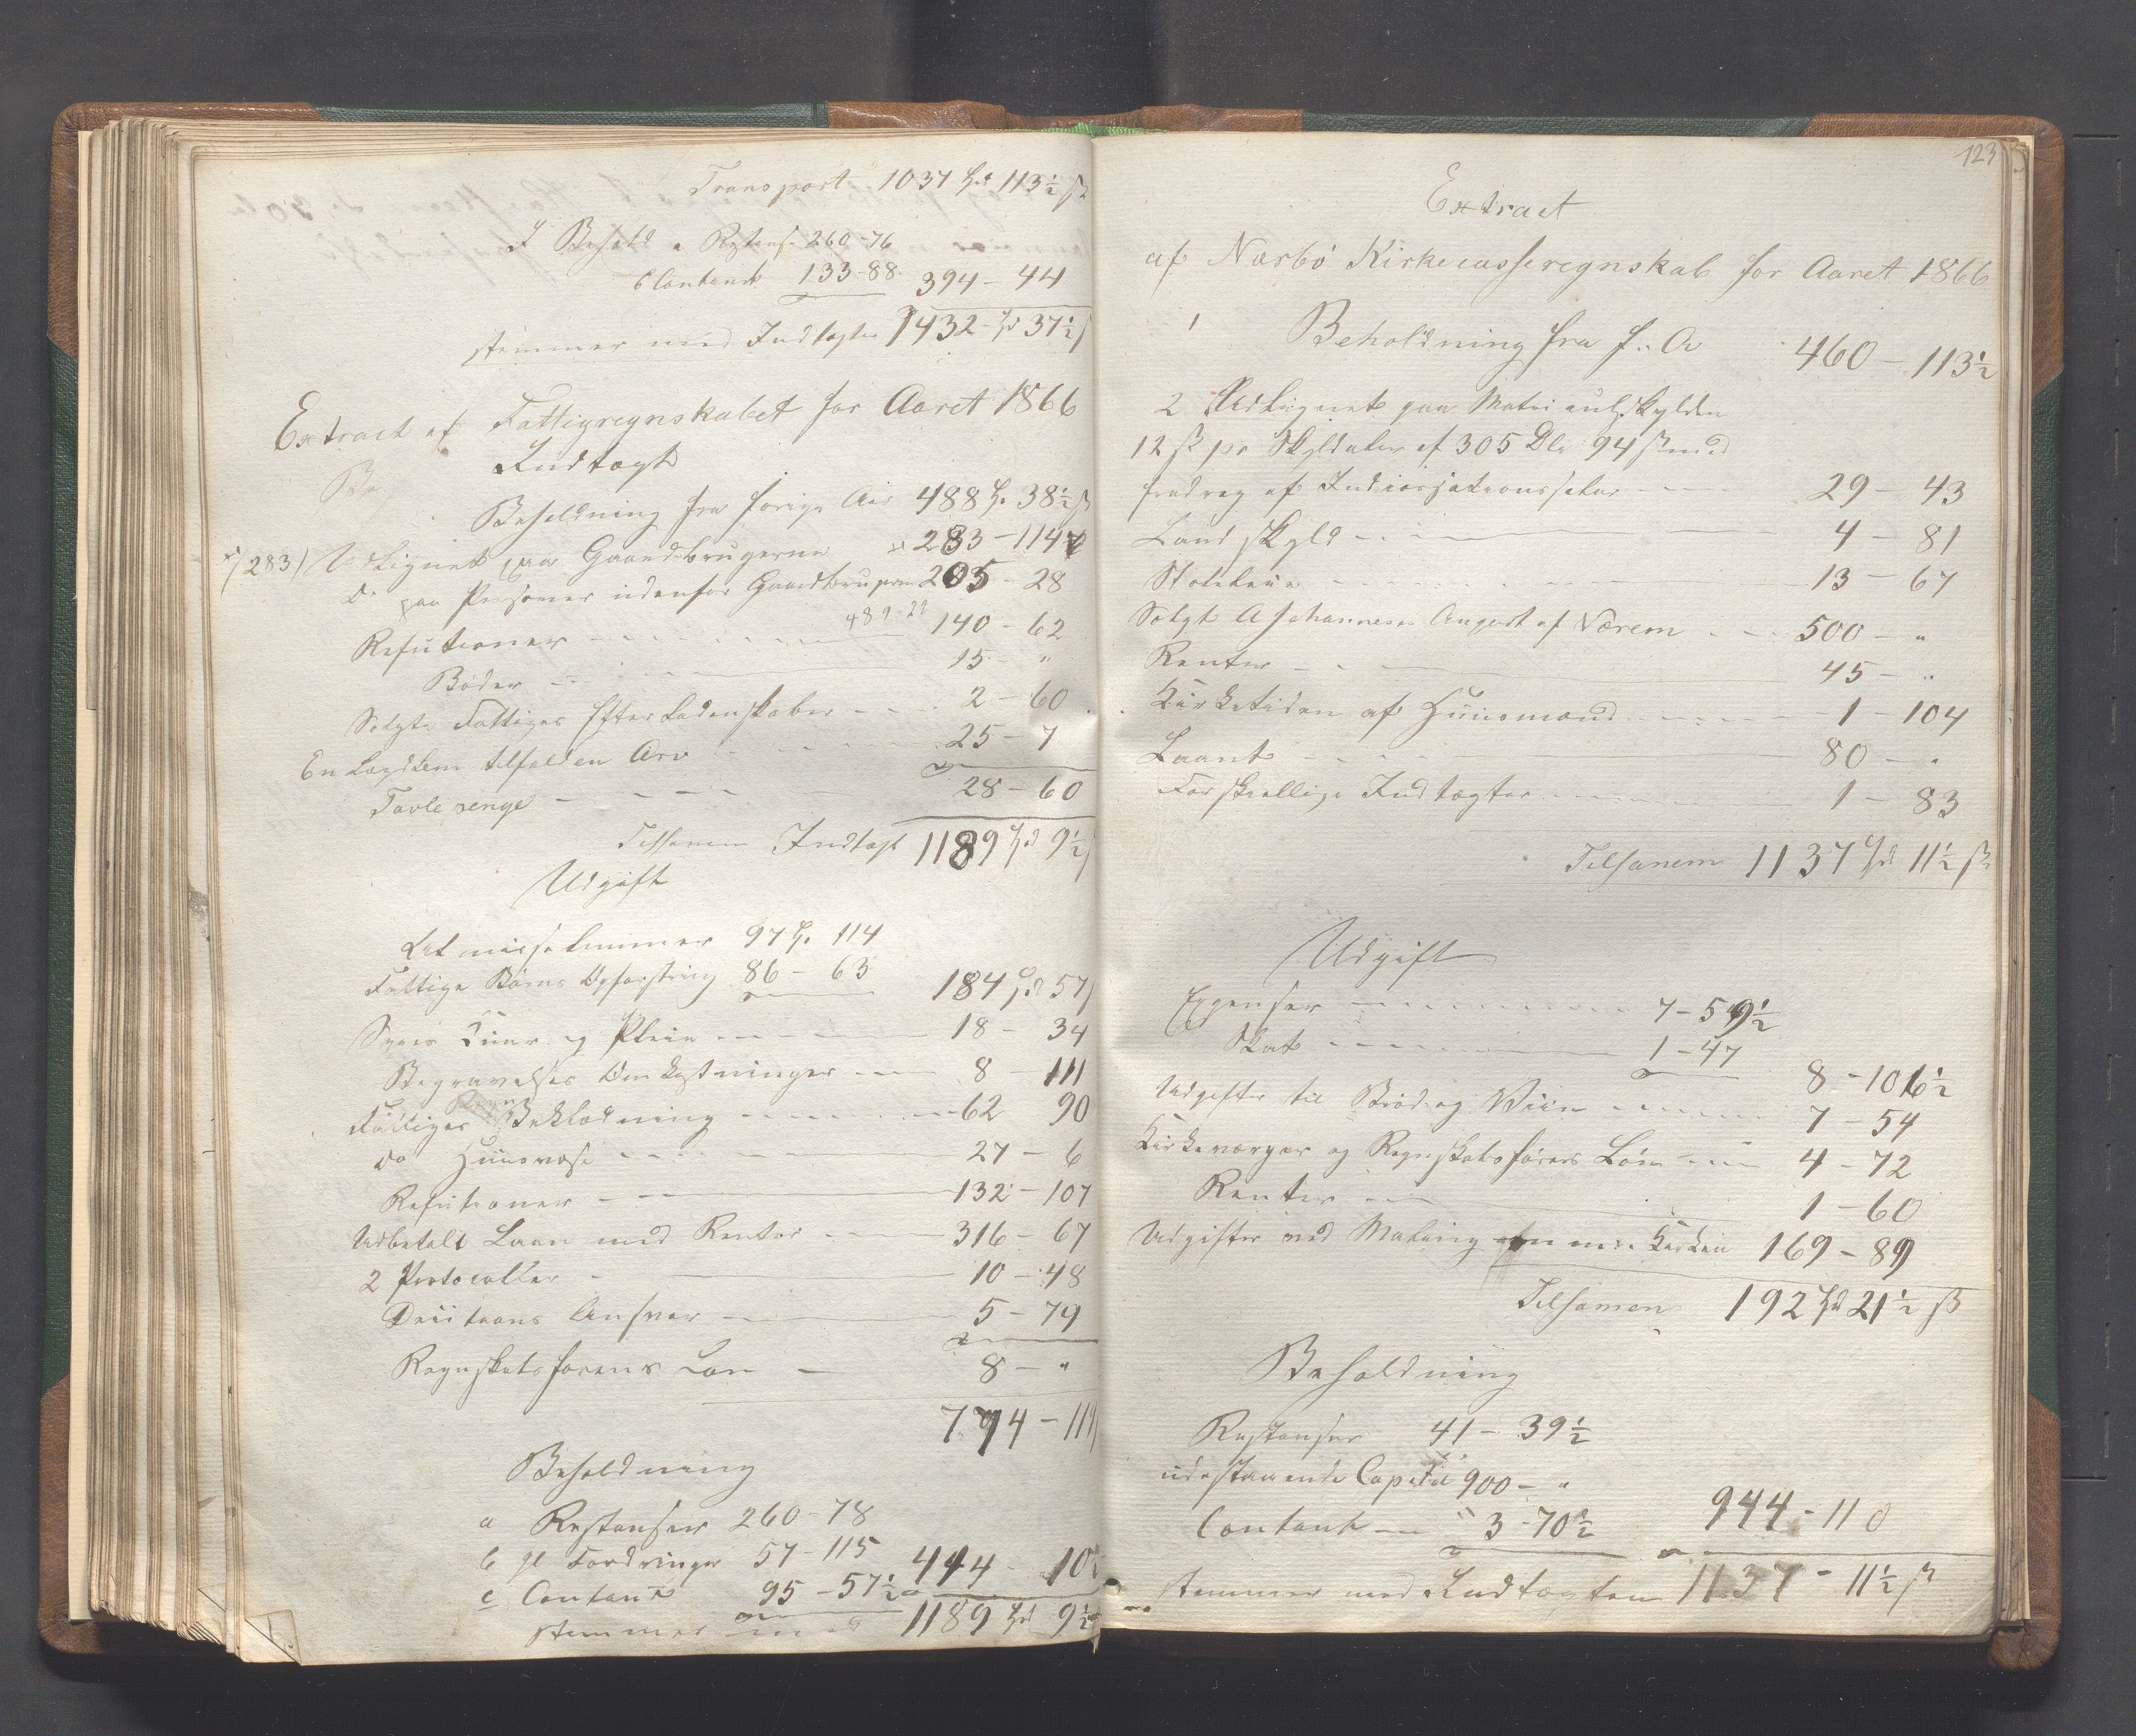 Transport 1037 Spd 113½ ß
I Behold a Restanse 260-76
b Contant 133-88 394-44
stemmer med Indtægten 1432 Spd 37½ ß
Extract af Fattigregnskabet for Aaret 1866
Indtægt
Beholdning fra forige Aar 488 Sp. 38½ ß
283) Udlignet paa Gaardbrugerne 283-114
Do paa Personer udenfor Gaardbrugerne 205-28
489-22
Refutioner 140-62
Bøder 15-"
Solgte Fattiges Efterladenskaber 2-60
En Lægdslem tilfalden Arv 25-7
Tavle penge 28-60
Tilsamen Indtægt 1189 Spd 9½ ß
Udgift
Lægdslemmer 97 Sp. 114
Fattige Børns Opfostring 86-63 184 Spd 57 ß
Syges Kuur og Pleie 18-34
Begravelses Omkostninger 8-111
Fattiges Beklædning 62 90
Do Huusvask 27-6
Refutioner 132-107
Udbetalt Laan med Renter 316-67
2 Protocoller 10-48
Ansvar 5-79
Regnskabsførens Løn 8-"
794-119
Beholdning
a Restanser 260-78
b gl Fordringer 57-115
c Contant 95-57½ 414-10½
stemmer med 1189 Spd 9½
123
Extract
af Nærbø Kirkecasseregnskab for Aaret 1866
1 Beholdning fra f. A 460-113½
2 Udlignet paa Matriculskylden
12 ß pr Skylddaler af 305 Dlr 94 ß med
fradrag af 29-43
Landskyld 4-81
Stoleleie 13-67
Solgt A Johannesen Angert af Værem 500-"
Renter 45-"
Kirketiden af Huusmænd 1-104
Laant 80-"
Forskjellige Indtægter 1-83
Tilsamem 1137 Spd 11½ ß
Udgift
Expenser 7-59½
Skat 1-47
8-106½
Udgifter til Brød og Viin 7-54
Kirkeværger og Regnskabsførers Løn 4-72
Renter 1-60
Udgifter ved Maling Kirken 169-89
Tilsamen 192 Spd 21½ ß
Beholdning
Restanser 41-39½
udestaaende Capital 900-"
Contant 3-70½ 944-110
stemmer med Indtægten 1137-11½ ß